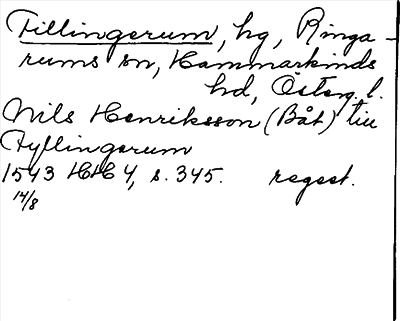 Fillingerum, hg, Ringa-
rums sn, Hammarkinds
hd, Österg. l.
Nils Henriksson (Båt) till
Fyllingerum
1543 HH 4, s. 345. regest.
14/8